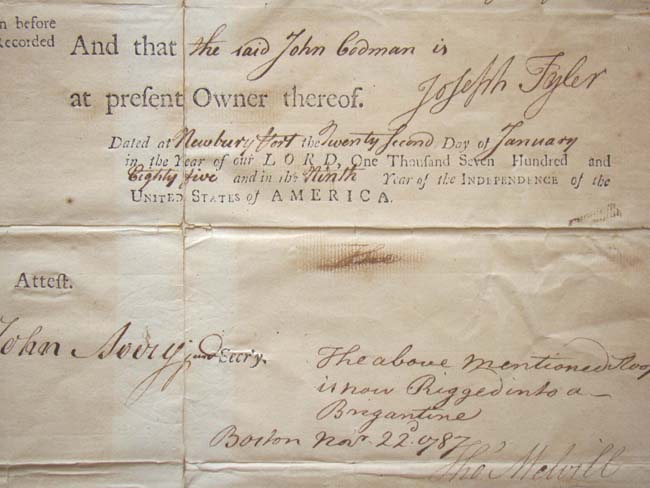 n before
Recorded
And that the said John Codman is
at preſent Owner thereof.
Joseph Tyler
Dated at Newbury Port the Twenty Second Day of January
in the Year of our LORD, One Thousand Seven Hundred and
Eighty five and in the Ninth Year of the INDEPENDENCE of the
UNITED STATES of AMERICA.
Atteſt.
John Avery junr Secr'y.
The above Mentioned Sloop
is now Rigged into a
Brigantine
Boston Novr. 22d. 1787
Thos Melvill